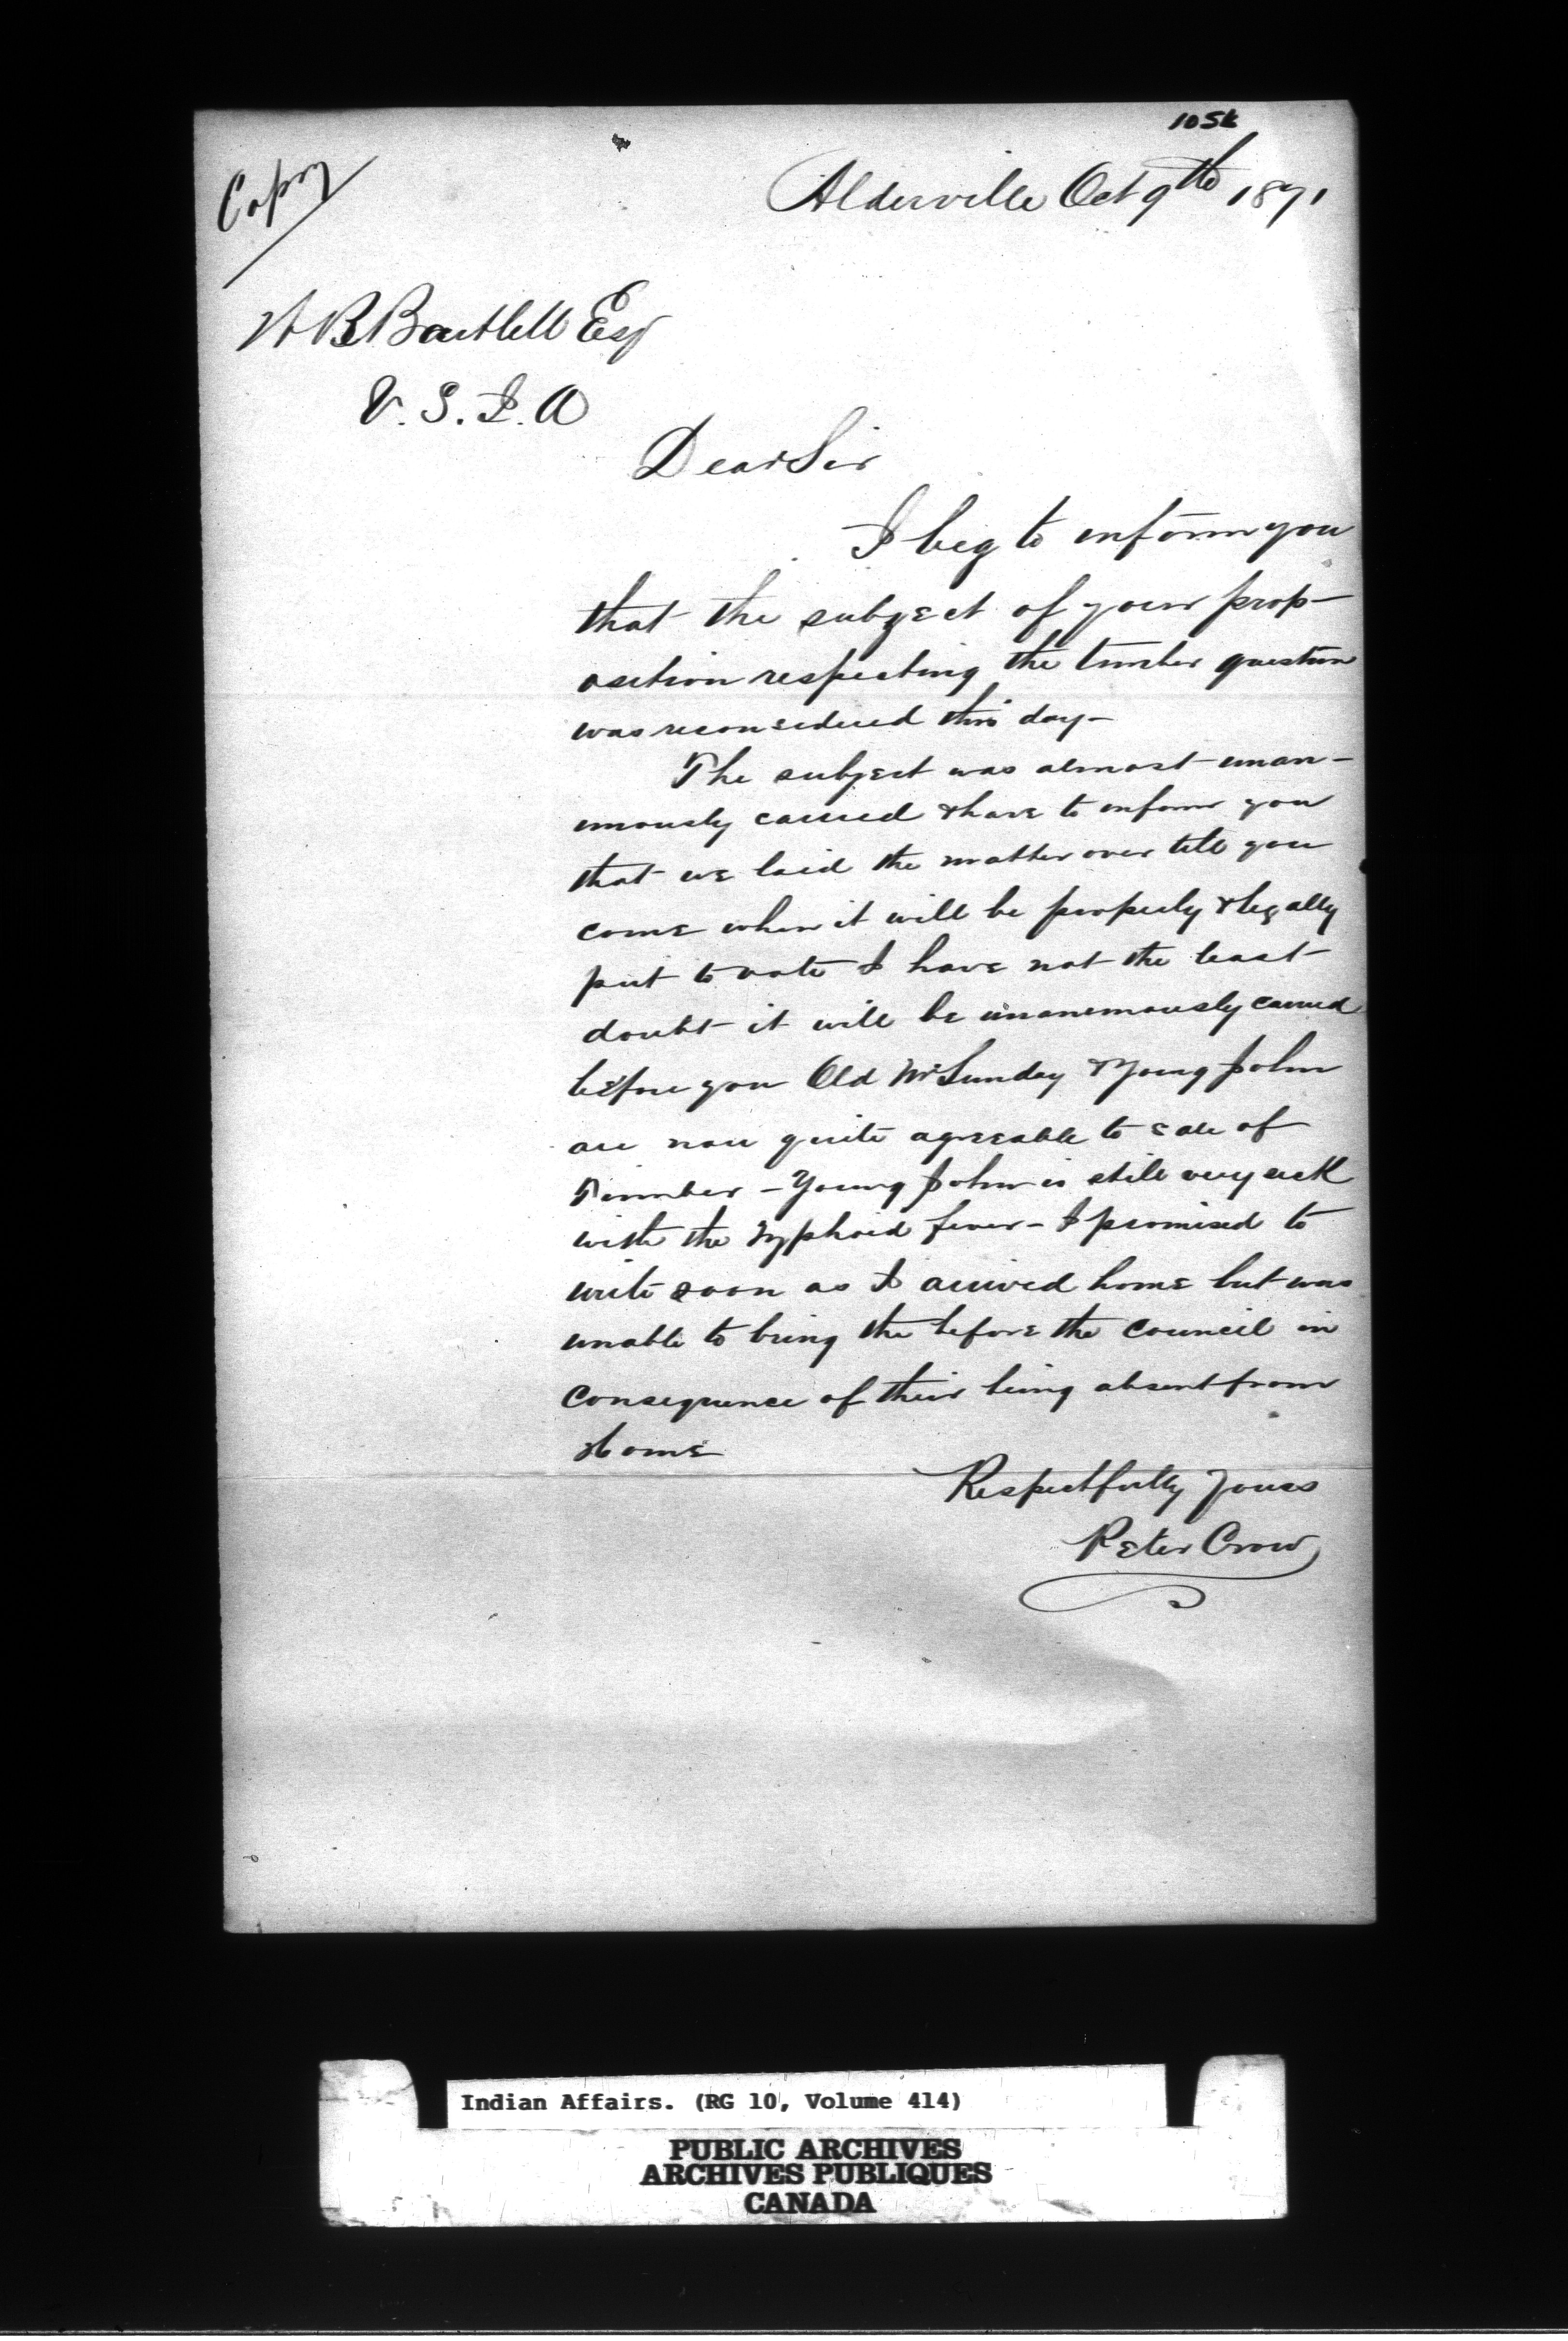 105k
Copy
Alderville Oct 9th 1871
W B Bartlett Esq
V. S. I. A
Dear Sir
I beg to inform you
that the subject of your prop-
osition respecting the timber question
was reconsidered this day-
The subject was almost unan-
imously carried & have to inform you
that we laid the matter over till you
come when it will be properly & legally
put to vote I have not the least
doubt it will be unanemously carried
before you Old Mr Sunday & Young John
are now quite agreeable to sale of
Timber - Young John is still very sick
with the Typhoid fever - I promised to
write soon as I arrived home but was
unable to bring the before the Council in
consequence of their being absent from
Home
Respectfully Yours
Peter Crow
Indian Affairs. (RG 10, Volume 414)
PUBLIC ARCHIVES
ARCHIVES PUBLIQUES
CANADA